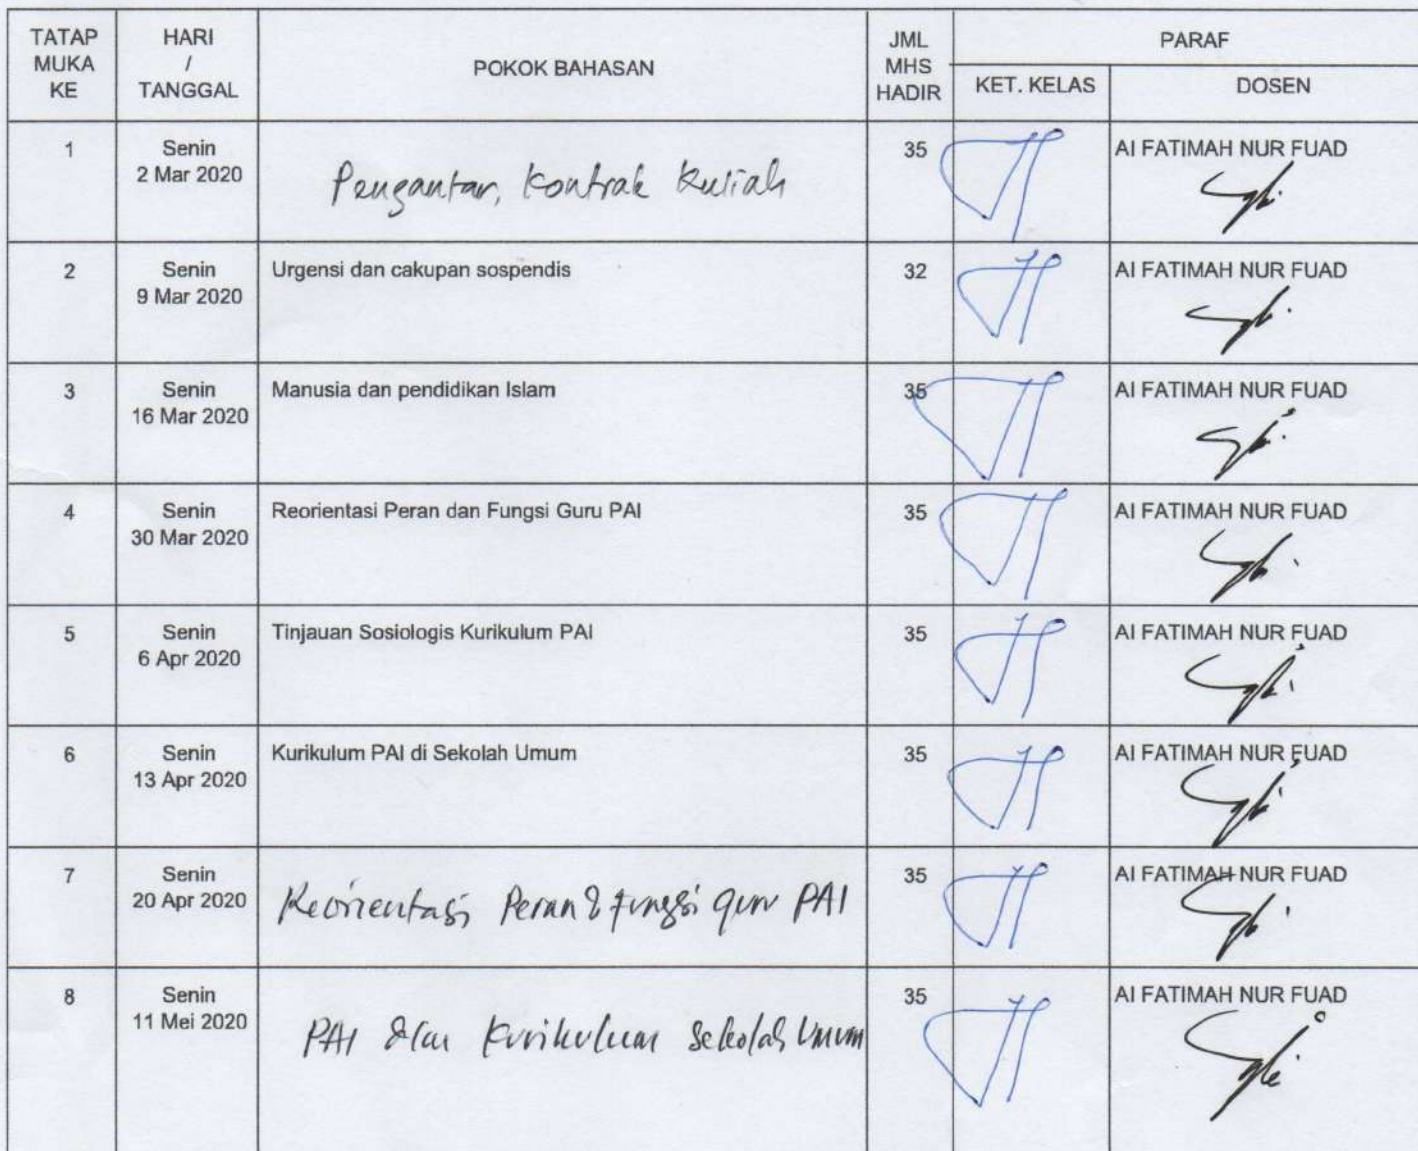 TATAP MUKA KE
HARI / TANGGAL
POKOK BAHASAN
JML MHS HADIR
PARAF
KET. KELAS
DOSEN
1
Senin
2 Mar 2020
Pengantar, Kontrak Kuliah
35
AI FATIMAH NUR FUAD
2
Senin
9 Mar 2020
Urgensi dan cakupan sospendis
32
AI FATIMAH NUR FUAD
3
Senin
16 Mar 2020
Manusia dan pendidikan Islam
35
AI FATIMAH NUR FUAD
4
Senin
30 Mar 2020
Reorientasi Peran dan Fungsi Guru PAI
35
AI FATIMAH NUR FUAD
5
Senin
6 Apr 2020
Tinjauan Sosiologis Kurikulum PAI
35
AI FATIMAH NUR FUAD
6
Senin
13 Apr 2020
Kurikulum PAI di Sekolah Umum
35
AI FATIMAH NUR FUAD
7
Senin
20 Apr 2020
Reorientasi Peran & fungsi guru PAI
35
AI FATIMAH NUR FUAD
8
Senin
11 Mei 2020
PAI dlm Kurikulum Sekolah Umum
35
AI FATIMAH NUR FUAD